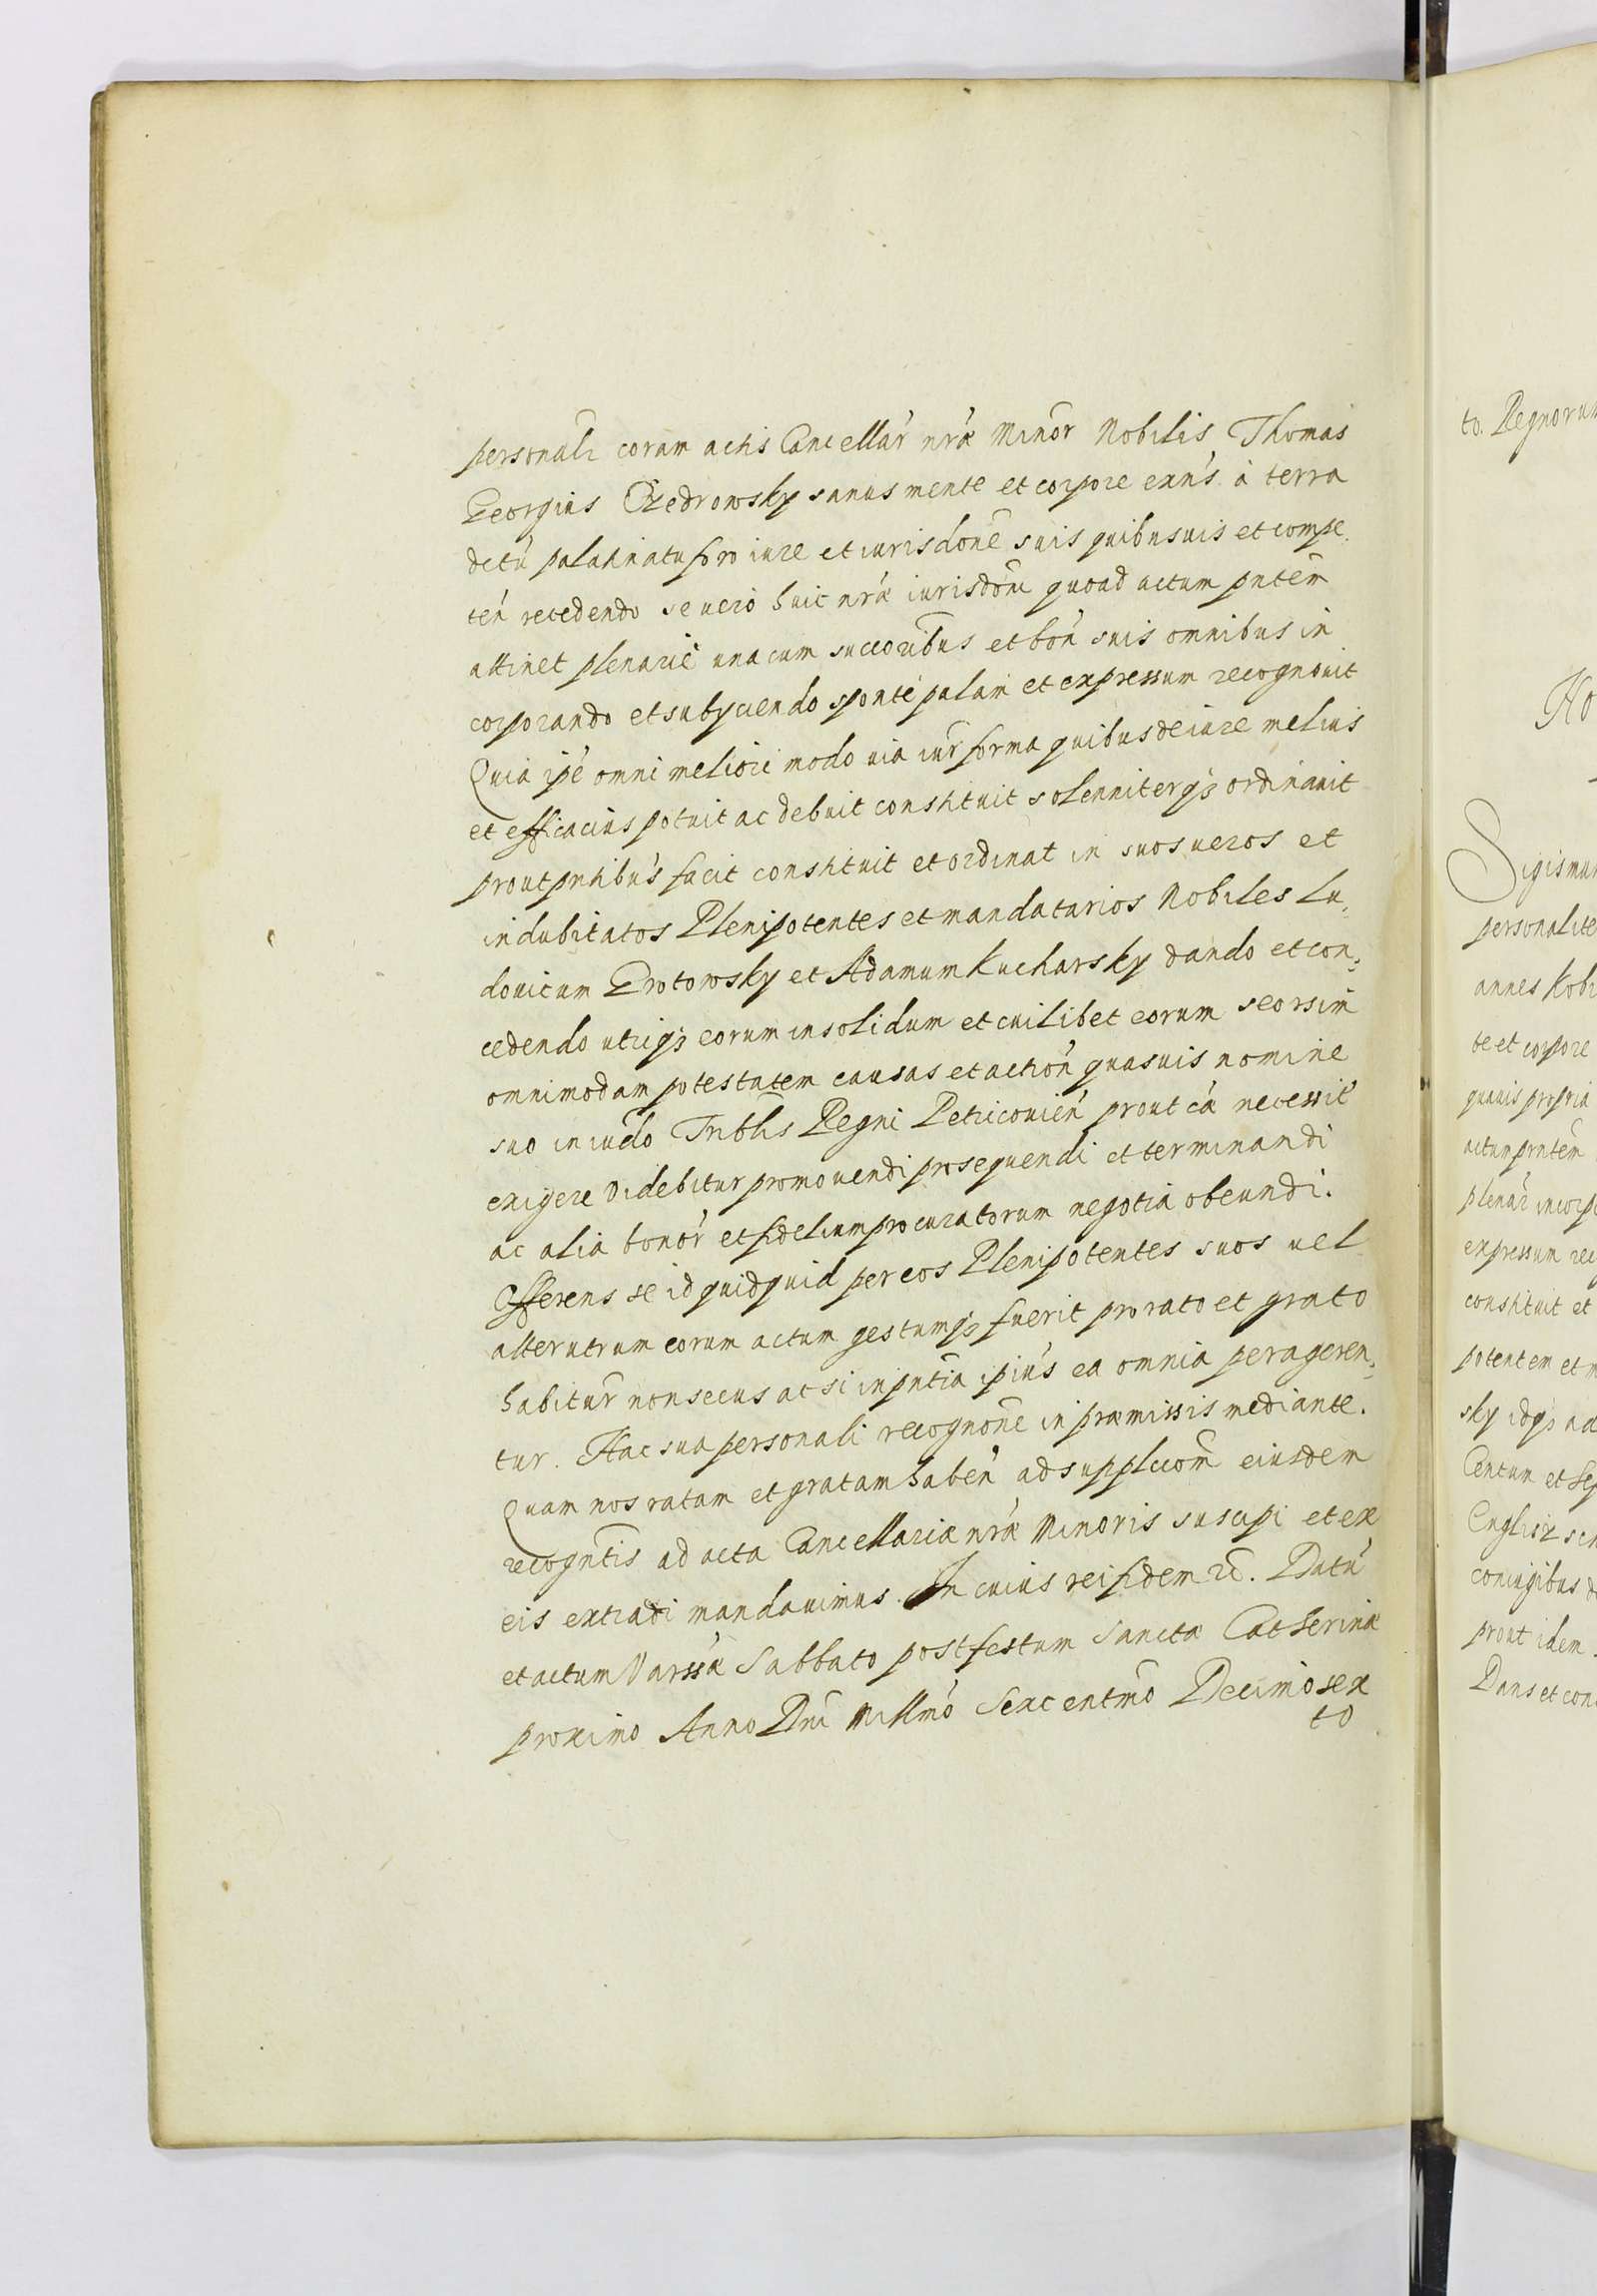 personalr̃ coram actis Cancellar̃ nræ Minor̃ Nobilis Thomas
Georgius Czedrowsky sanus mente et corpore exñs à terra
dctũ palatinatu foro iure et iurisdõne suis quibusuis et compe
teñ recedendo se uero huic nræ iurisdõni quoad actum pñtem
attinet plenariè unacum succoribus et boñ suis omnibus in
corporando et subÿciendo spontè palàm et expressum recognouit
Quia ipẽ omni meliori modo uia iur̃ forma quibus de iure melius
et efficacius potuit ac debuit constituit solenniterq3 ordinauit
prout pñtibus facit constituit et ordinat in suos ueros et
indubitatos Plenipotentes et mandatarios Nobiles Lu,
douicum Grotowsky et Adamum Kucharsky dando et con,
cedendo utriq3 eorum in solidum et cuilibet eorum seorsim
omnimodam potestatem causas et action̄ quasuis nomine
suo in iudõ Tribłis Regni Petricouień prout eã necessit̃
exigere Videbitur promouendi prosequendi et terminandi
ac alia bonor̃ et fidelium procuratorum negotia obeundi.
Offerens se id quidquid per eos Plenipotentes suos uel
alterutrum eorum actum gestumq3 fuerit pro rato et grato
habitur̃ non secus ac si in pñtia ipius ea omnia perageren,
tur. Hac sua personali recognõne in præmissis mediante.
Quam nos ratam et gratam habeñ ad supplicõm eiusdem
recogñtis ad acta Cancellariæ nræ Minoris suscipi et ex
eis extradi mandauimus. In cuius rei fidem rẽ. Datũ
et actum Varssæ Sabbato post festum Sanctæ Catherinæ
proximo Anno Dñi Millmõ Sexcentmõ Decimo sex
to
to. Regnorum
Ho
Sigismun
personalite
annes Kobi
te et corpore
quauis propria
actum pñtem
plenar̃ incorp
expressum rec
constituit et
potentem et m
sky idq3 ad
Centum et Sep
Englisz sen
coniugibus d
prout idem
Dans et conc